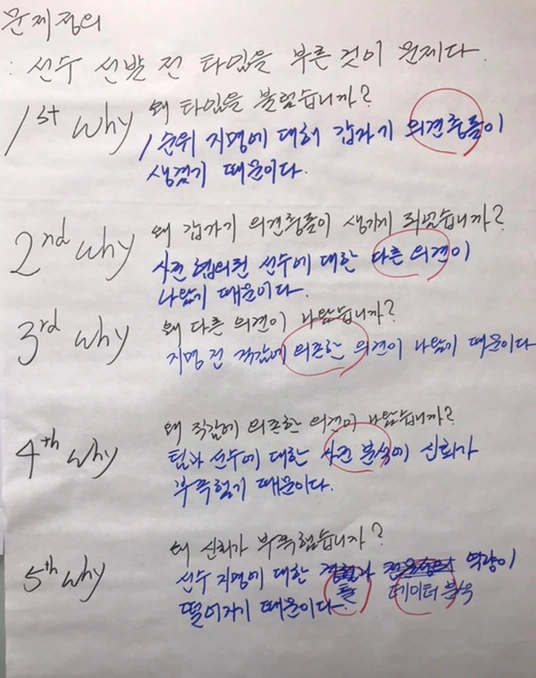 문제정의
: 선수 선발 전 타임을 부른 것이 문제다.
1st Why 왜 타임을 불렀습니까?
1순위 지명에 대해 갑자기 의견충돌이
생겼기 때문이다.
2nd Why 왜 갑자기 의견충돌이 생기게 되었습니까?
사전 협의된 선수에 대한 다른 의견이
나왔기 때문이다.
3rd Why 왜 다른 의견이 나왔습니까?
지명 전 직감에 의존한 의견이 나왔기 때문이다
4th Why 왜 직감에 의존한 의견이 나왔습니까?
팀과 선수에 대한 사전 분석이 신뢰가
부족했기 때문이다.
5th Why 왜 신뢰가 부족했습니까?
선수 지명에 대한 역량이
툴 데이터 분석
떨어지기 때문이다.